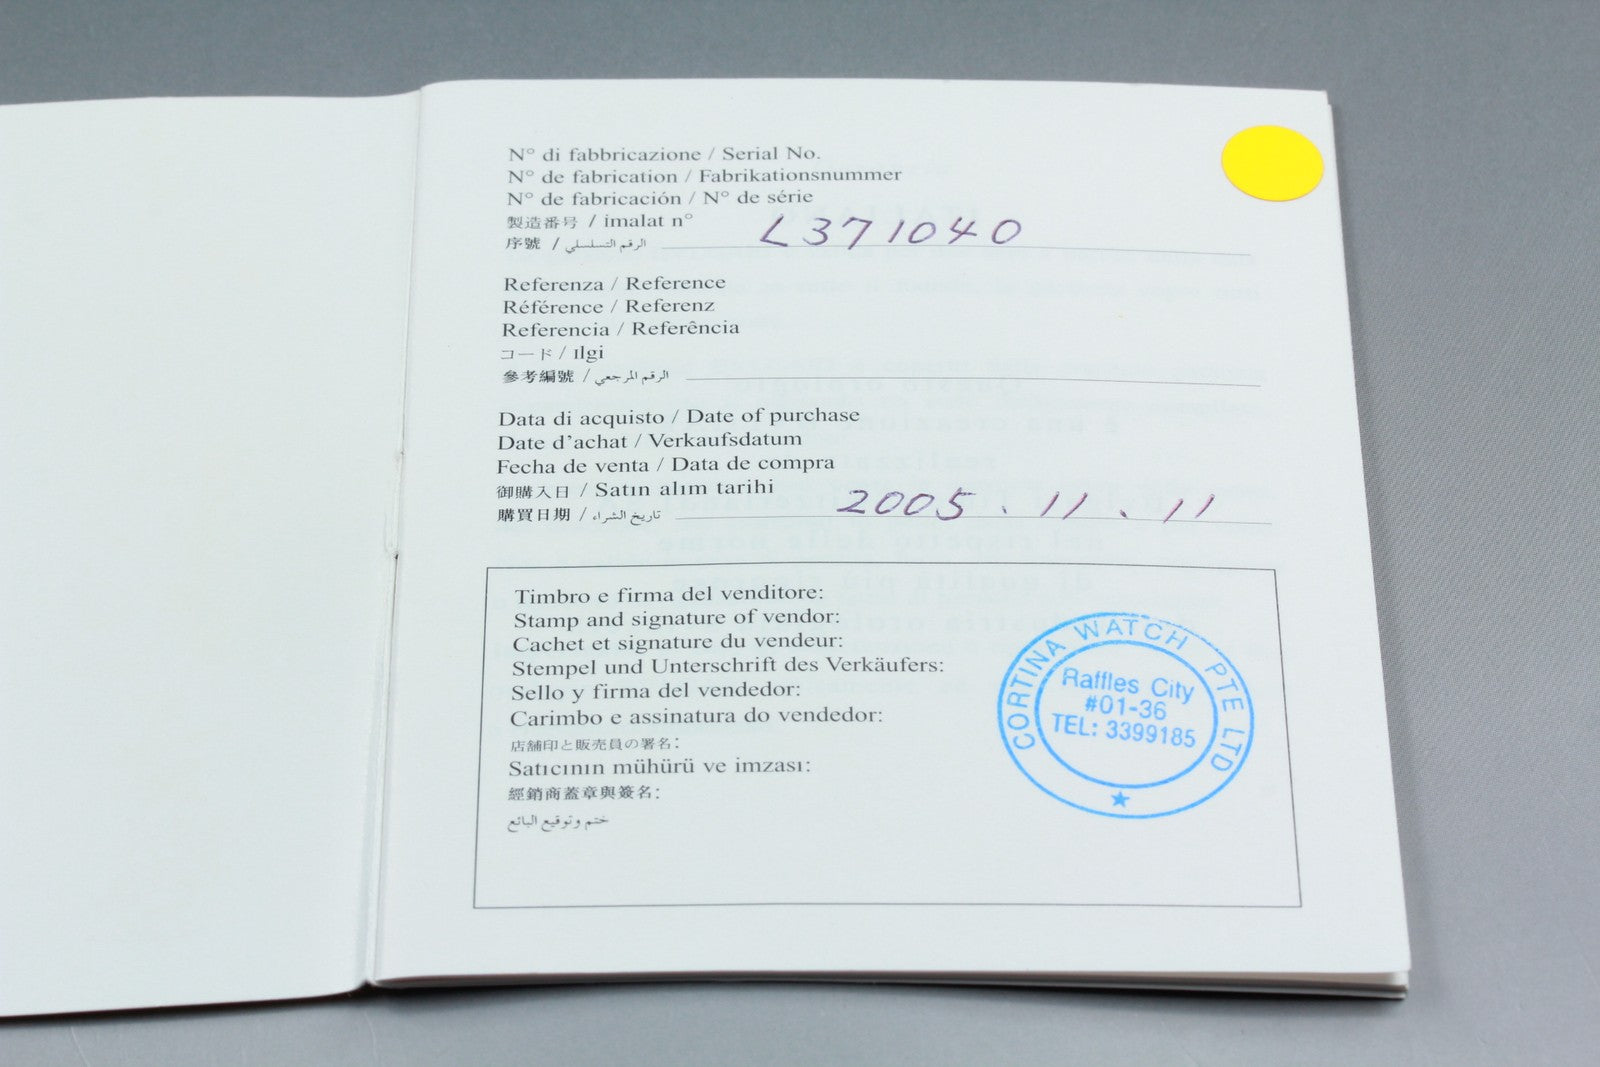 N° di fabbricazione / Serial No.
N° de fabrication / Fabrikationsnummer
N° de fabricación / N° de série
製造番号 / imalat n°
序號 / الرقم التسلسلي L371040
Referenza / Reference
Référence / Referenz
Referencia / Referência
コード / Ilgi
參考編號 / الرقم المرجعي
Data di acquisto / Date of purchase
Date d'achat / Verkaufsdatum
Fecha de venta / Data de compra
御購入日 / Satın alım tarihi
購買日期 / تاريخ الشراء 2005 . 11 . 11
Timbro e firma del venditore:
Stamp and signature of vendor:
Cachet et signature du vendeur:
Stempel und Unterschrift des Verkäufers:
Sello y firma del vendedor:
Carimbo e assinatura do vendedor:
店舗印と販売員の署名:
Satıcının mühürü ve imzası:
經銷商蓋章與簽名:
ختم وتوقيع البائع
CORTINA WATCH PTE LTD
Raffles City
#01-36
TEL: 3399185